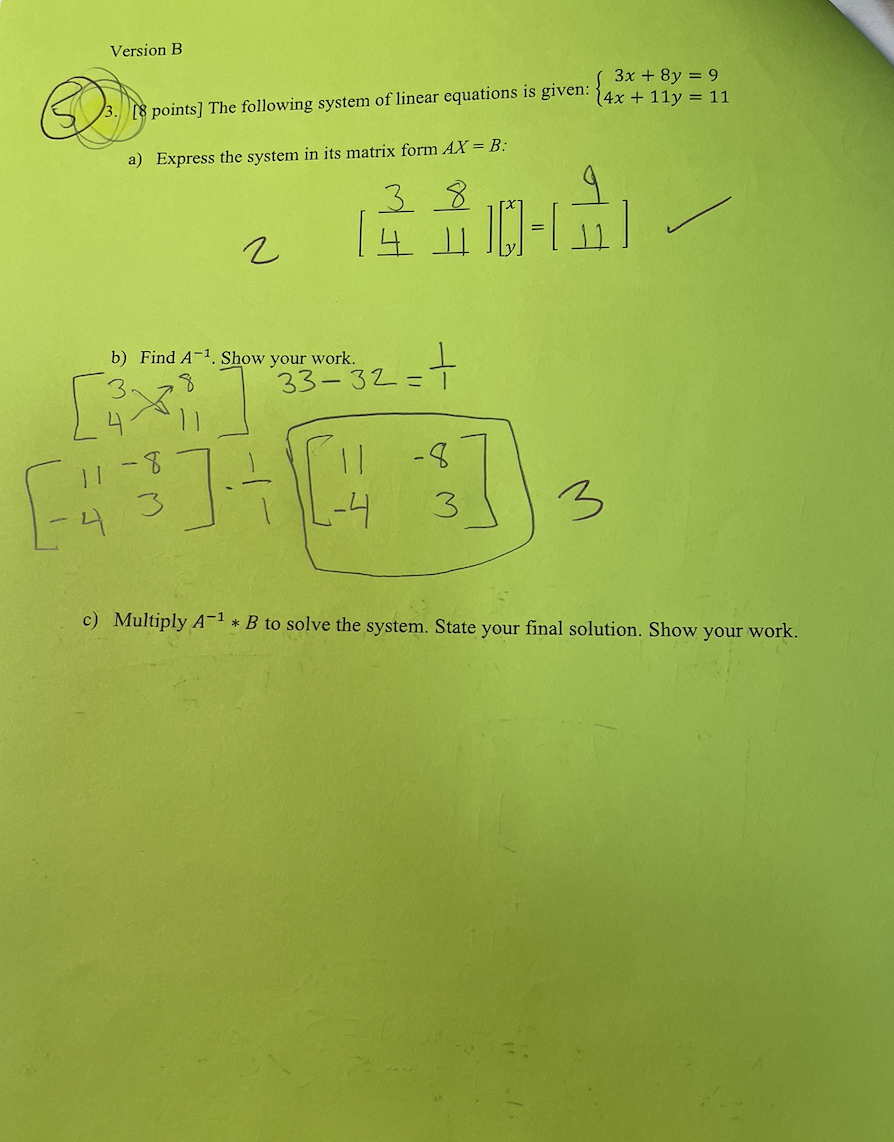 Version B
5
3. [8 points] The following system of linear equations is given: { 3x + 8y = 9
4x + 11y = 11
a) Express the system in its matrix form AX = B:
[ 3 8
4 11 ] [ x
y ] = [ 9
11 ] ✓
2
b) Find A⁻¹. Show your work.
[ 3 8
4 11 ] 33 – 32 = 1/1
[ 11 -8
-4 3 ] · 1/1 [ 11 -8
-4 3 ] 3
c) Multiply A⁻¹ * B to solve the system. State your final solution. Show your work.